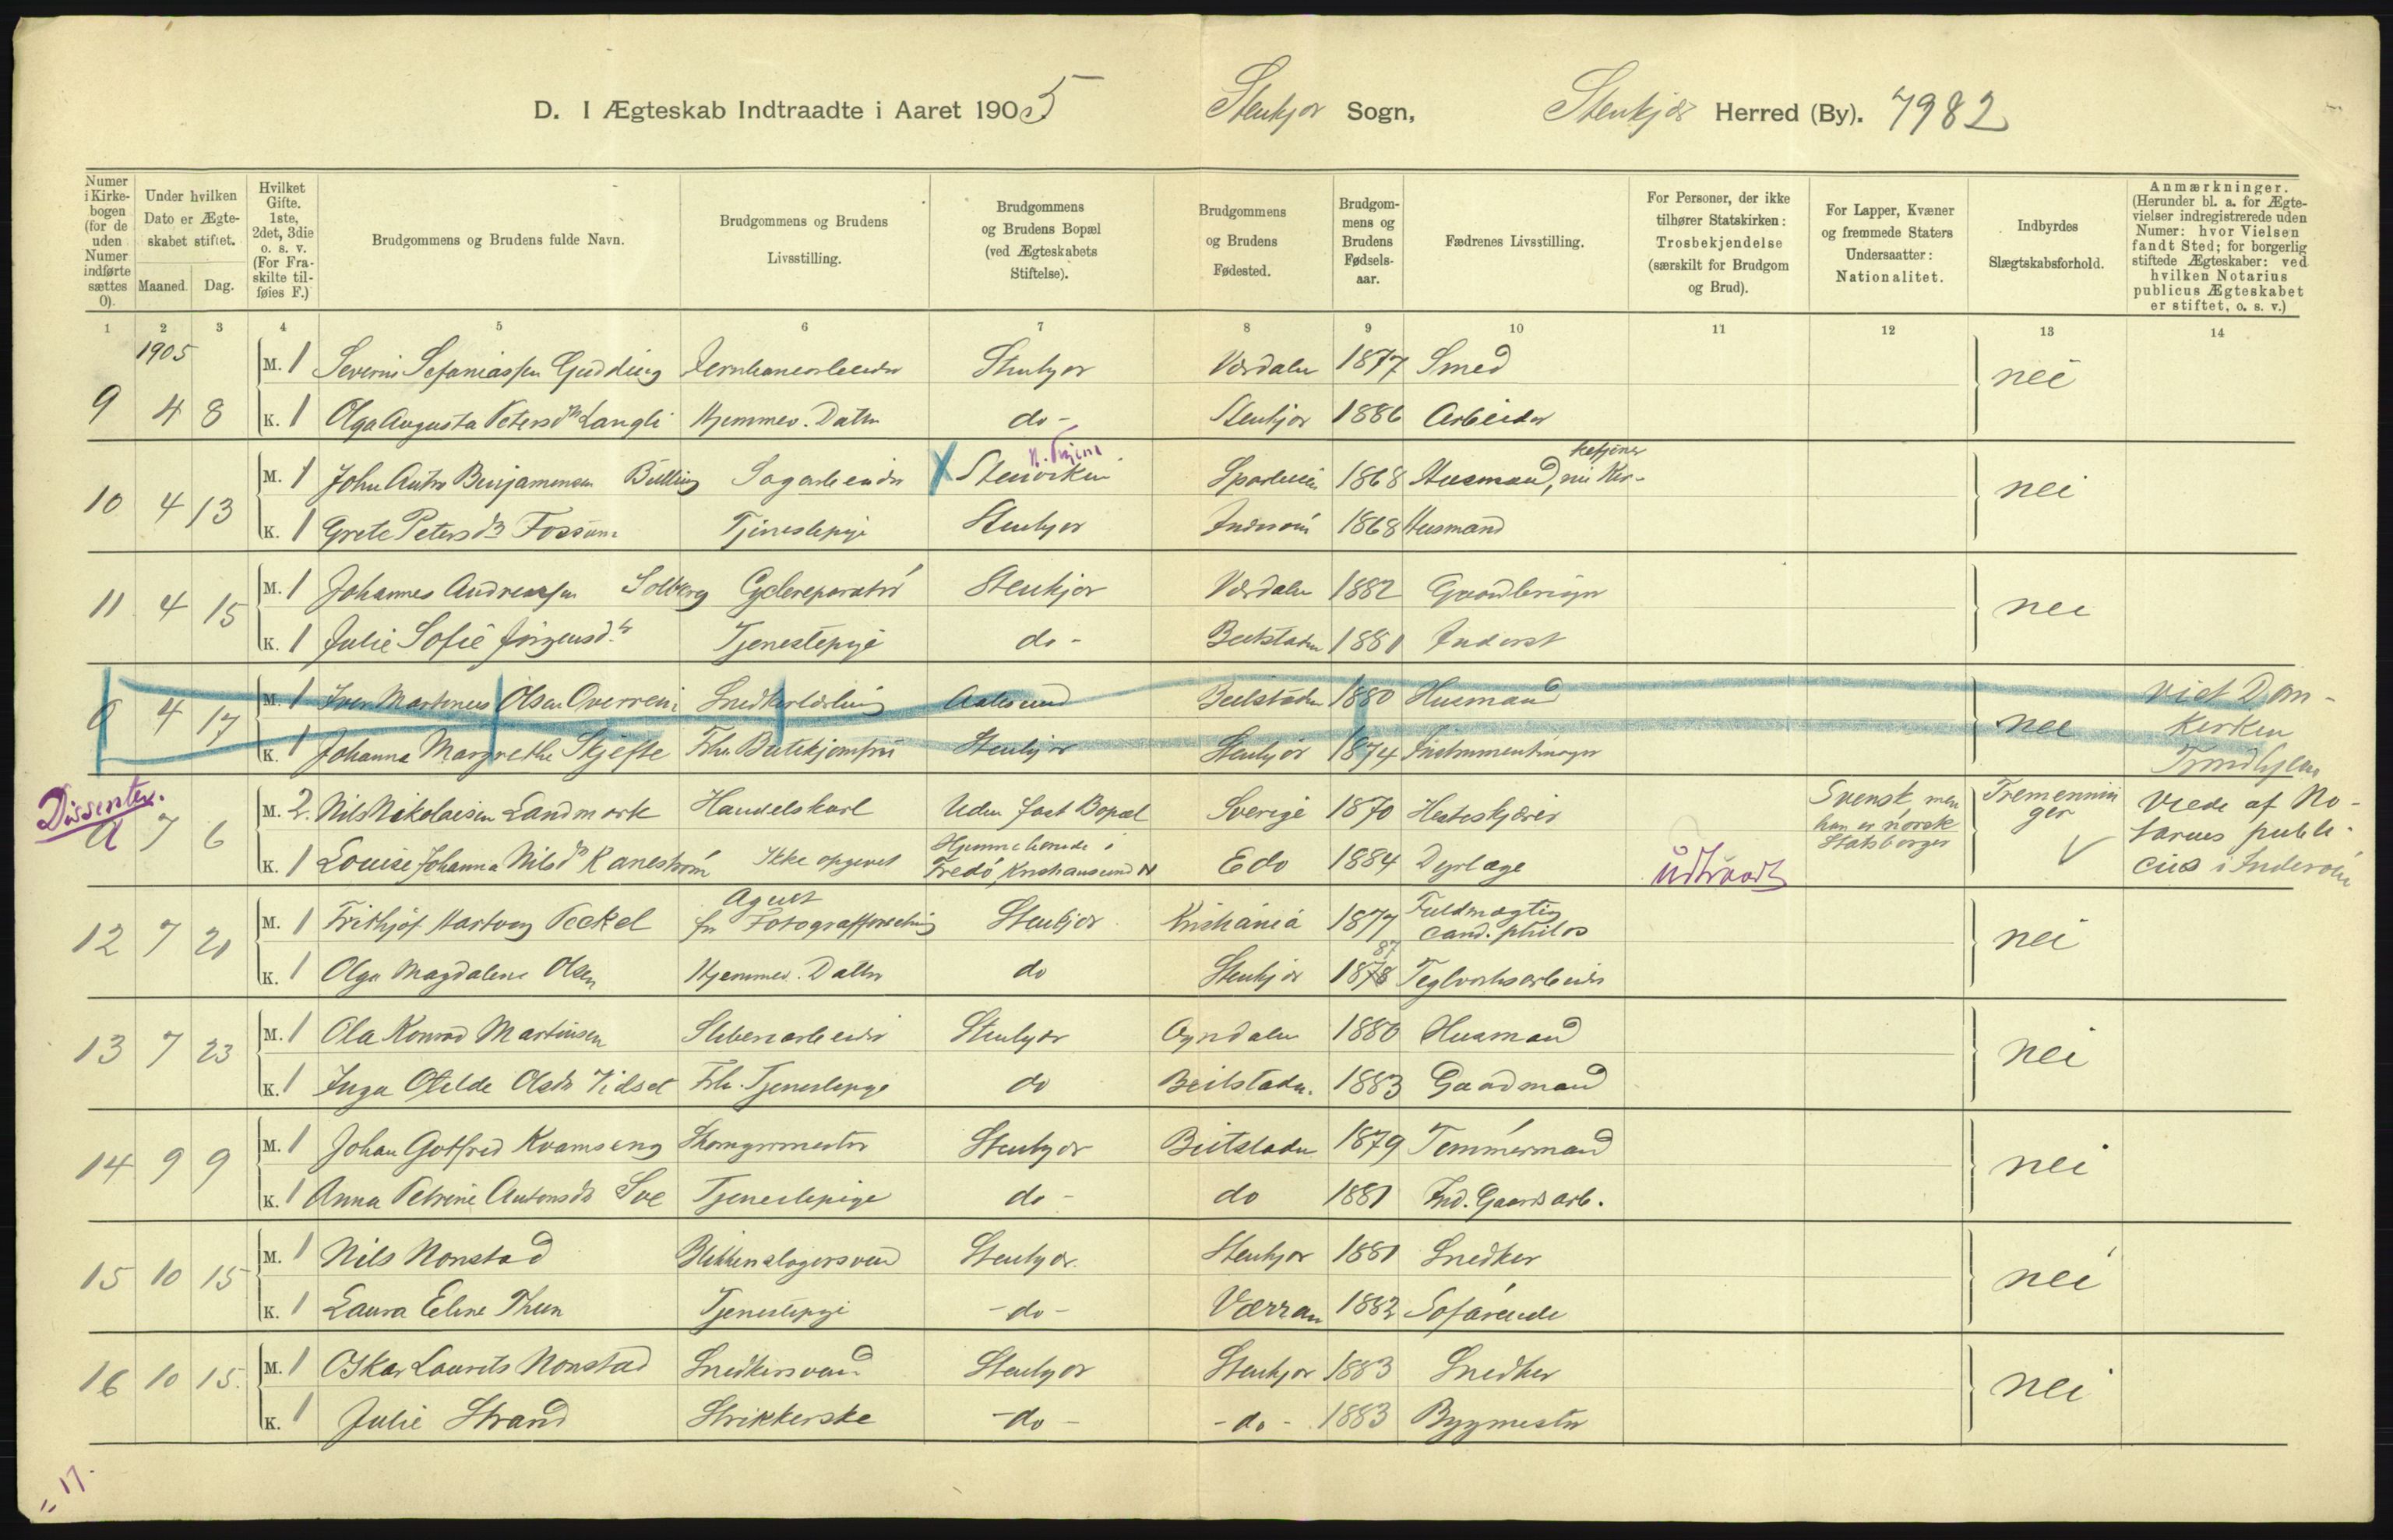 D. I Ægteskab Indtraadte i Aaret 1905 Stenkjær Sogn, Stenkjær Herred (By). 7982
Numer i Kirkebogen (for de uden Numer indførte sættes 0).
Under hvilken Dato er Ægteskabet stiftet.
Maaned. Dag.
Hvilket Gifte. 1ste, 2det, 3die o. s. v. (For Fraskilte tilføies F.)
Brudgommens og Brudens fulde Navn.
Brudgommens og Brudens Livsstilling.
Brudgommens og Brudens Bopæl (ved Ægteskabets Stiftelse).
Brudgommens og Brudens Fødested.
Brudgommens og Brudens Fødselsaar.
Fædrenes Livsstilling.
For Personer, der ikke tilhører Statskirken: Trosbekjendelse (særskilt for Brudgom og Brud).
For Lapper, Kvæner og fremmede Staters Undersaatter: Nationalitet.
Indbyrdes Slægtskabsforhold.
Anmærkninger. (Herunder bl. a. for Ægtevielser indregistrerede uden Numer: hvor Vielsen fandt Sted; for borgerlig stiftede Ægteskaber: ved hvilken Notarius publicus Ægteskabet er stiftet, o. s. v.)
1 2 3 4 5 6 7 8 9 10 11 12 13 14
1905
M. 1 Severin Sefaniassen Gudding Stenkjær Værdalen 1877 Smed nei
9 4 8
K. 1 Olga Augusta Petersdtr Langli Hjemmev. Datter do- Stenkjær 1886 Arbeider
M. 1 John Antro Benjaminsen Sagarbeider X 1868 Husmand, nu nei
10 4 13
K. 1 Grete Petersdtr Fossum Tjenestepige Stenkjær Inderøen 1868 Husmand
M. 1 Johannes Andreassen Solberg Cyclereparatør Stenkjær Værdalen 1882 Gaardbruger nei
11 4 15
K. 1 Julie Sofie Jørgensdtr Tjenestepige do- Beitstaden 1881 Inderst
M. 1 Iver Martineus Olsen Overrein Snedkerlærling Aalesund Beitstaden 1880 Husmand viet Dom-
0 4 17 nei kirken
K. 1 Johanna Margrethe Skjefte Frk. Butikjomfru Stenkjær Stenkjær 1874 Instrumentmager Trondhjem
Dissenter.
M. 2. Nils Nikolaisen Landmark Handelskarl Uden fast Bopæl Sverige 1870 Hesteskjærer Svensk, men han er norsk Statsborger Tremenninger Viede af No-
0 7 6 tarius publi-
K. 1 Louise Johanna Nilsdtr Kanestrøm Ikke opgivet Hjemmehørende i Fredø, Kristiansund N Edø 1884 Dyrlæge udtraadt cus i Inderøen
M. 1 Frithjof Hartvig Teckel Agent for Fotografforretning Stenkjær Kristiania 1877 Fuldmægtig cand. philos nei
12 7 20
K. 1 Olga Magdalene Olsen Hjemmev. Datter do Stenkjær 1878 87 Teglværksarbeider
M. 1 Ola Konrad Martinsen Stenkjær Ogndalen 1880 Husmand nei
13 7 23
K. 1 Inga Otelde Olsdtr Vidset Frh. Tjenestepige do Beitstaden. 1883 Gaardmand
M. 1 Johan Gotfred Kvamseng Skomagermester Stenkjær Beitstaden 1879 Tømmermand nei
14 9 9
K. 1 Anna Petrine Antonsdtr Sve Tjenestepige do- do 1881 Ind. Gaardsarb.
M. 1 Nils Nonstad Blikkenslagersvend Stenkjær. Stenkjær 1881 Snedker nei
15 10 15
K. 1 Laura Eline Thun Tjenestepige -do- Værran 1882 Søfarende
M. 1 Oskar Laurits Nonstad Snedkersvend Stenkjær Stenkjær 1883 Snedker nei
16 10 15.
K. 1 Julie Strand Strikkerske -do- -do- 1883 Bygmester
17.